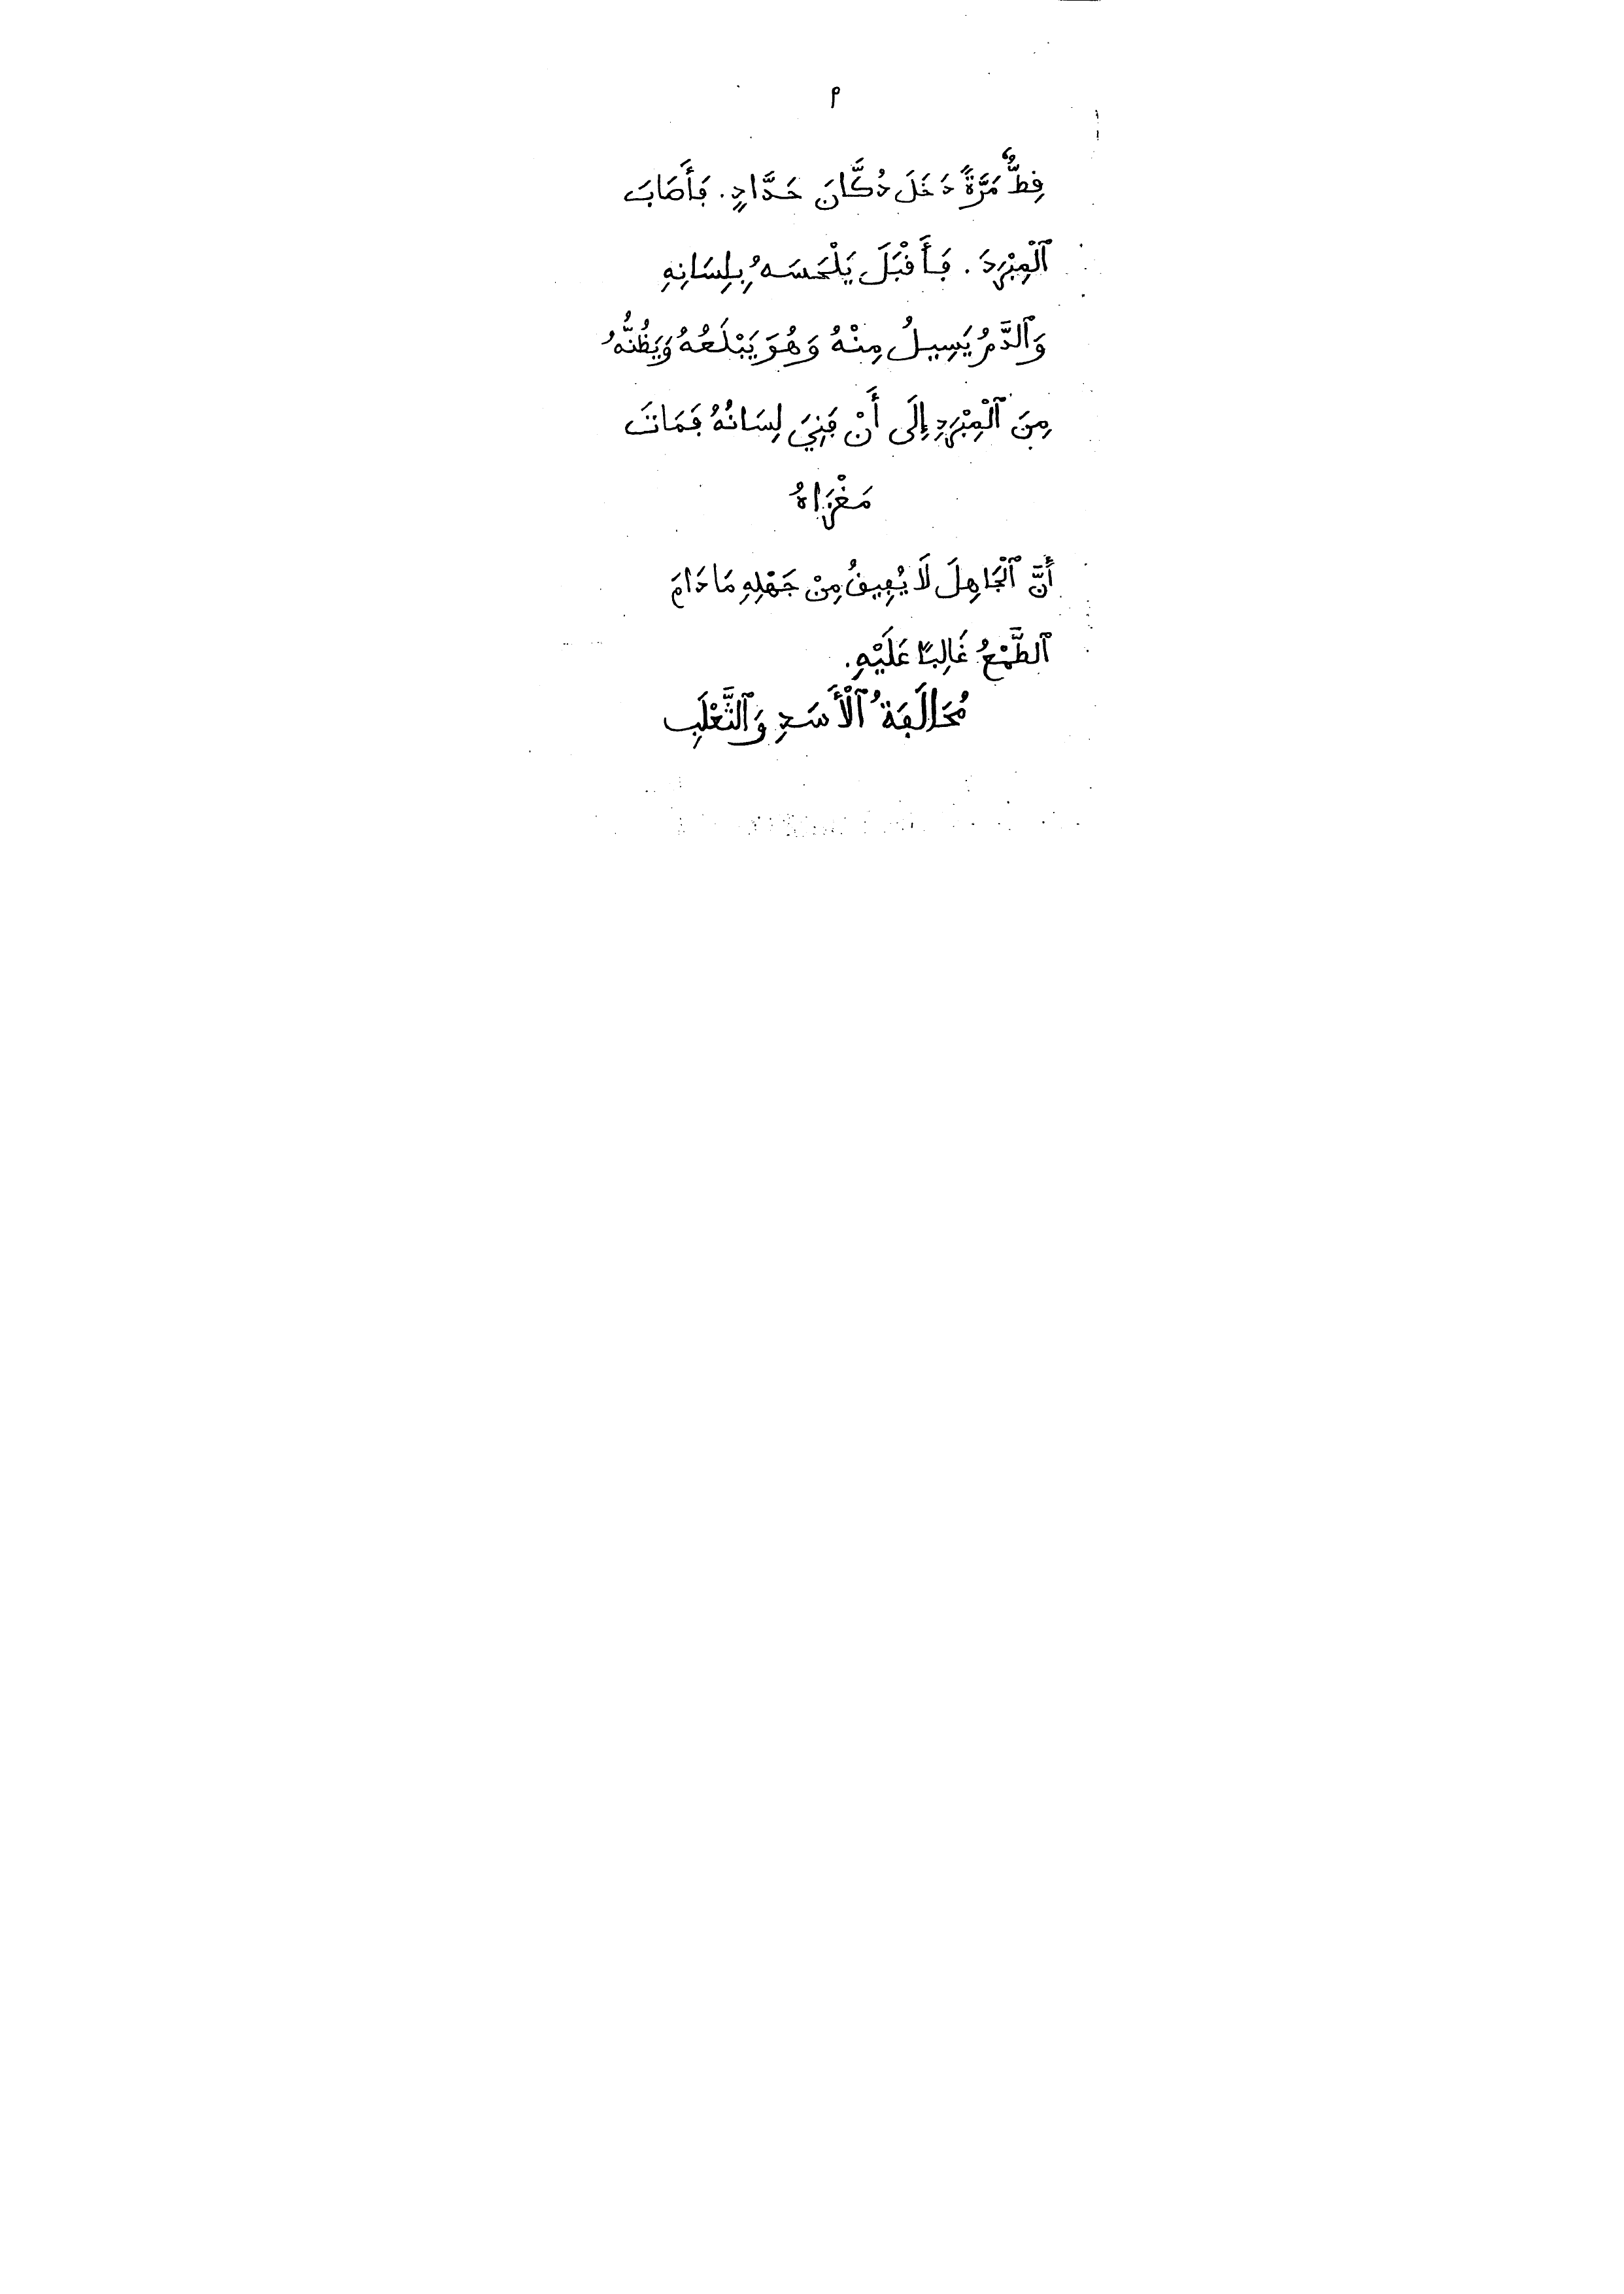 ٩
قِطٌّ مَرَّةً دَخَلَ دُكَّانَ حَدَّادٍ. فَأَصَابَ
ٱلْمِبْرَدَ. فَأَقْبَلَ يَلْحَسَهُ بِلِسَانِهِ
وَٱلدَّمُ يَسِيلُ مِنْهُ وَهُوَ يَبْلَعُهُ وَيَظُنُّهُ
مِنَ ٱلْمِبْرَدِ إِلَى أَنْ فَنِيَ لِسَانُهُ فَمَاتَ
مَغْزَاهُ
أَنَّ ٱلْجَاهِلَ لَا يُفِيقُ مِنْ جَهْلِهِ مَا دَامَ
ٱلطَّمْعُ غَالِبًا عَلَيْهِ.
مُحَالَفَةُ ٱلْأَسَدِ وَٱلثَّعْلَبِ